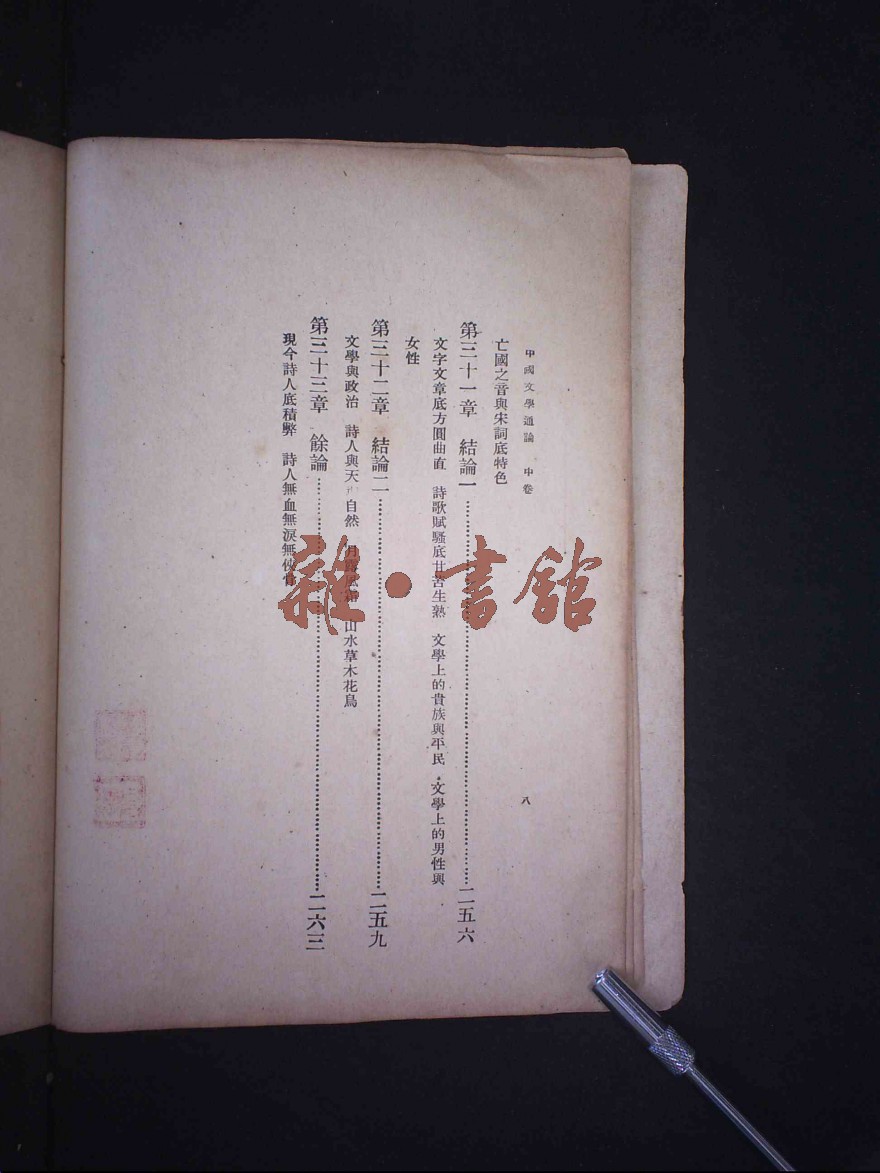 中國文學通論　中卷　八
亡國之音與宋詞底特色
第三十一章　結論一……二五六
文字文章底方圓曲直　詩歌賦騷底甘苦生熟　文學上的貴族與平民　文學上的男性與
女性
第三十二章　結論二……二五九
文學與政治　詩人與天　自然　山水草木花鳥
第三十三章　餘論……二六三
現今詩人底積弊　詩人無血無淚無俠骨
雜·書館